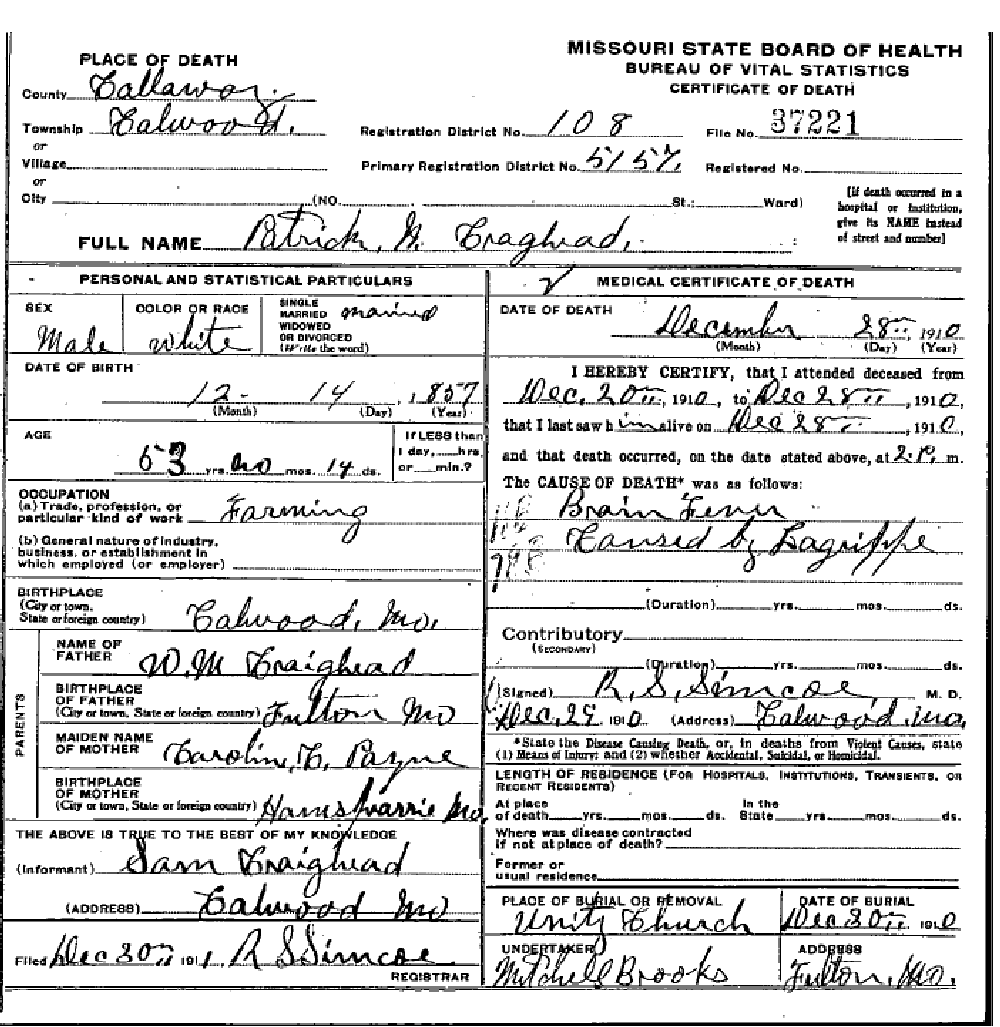 MISSOURI STATE BOARD OF HEALTH
BUREAU OF VITAL STATISTICS
CERTIFICATE OF DEATH
PLACE OF DEATH
County Callaway.
Township Calwood.
or
Village
or
City (NO. St.; Ward)
Registration District No. 108 File No. 37221
Primary Registration District No. 5157 Registered No.
[If death occurred in a
hospital or institution,
give its NAME instead
of street and number]
FULL NAME Patrick, Craghead.
PERSONAL AND STATISTICAL PARTICULARS
SEX Male
COLOR OR RACE white
SINGLE
MARRIED married
WIDOWED
OR DIVORCED
(Write the word)
DATE OF BIRTH
12- 14 , 1857
(Month) (Day) (Year)
AGE
63 yrs. no mos. 14 ds.
If LESS than
1 day, hrs.
or min.?
OCCUPATION
(a) Trade, profession, or
particular kind of work Farming
(b) General nature of industry,
business, or establishment in
which employed (or employer)
BIRTHPLACE
(City or town,
State or foreign country) Calwood, Mo.
PARENTS
NAME OF
FATHER W. M Craighead
BIRTHPLACE
OF FATHER
(City or town, State or foreign country) Fulton Mo
MAIDEN NAME
OF MOTHER Carolin, Payne
BIRTHPLACE
OF MOTHER
(City or town, State or foreign country) Mo.
THE ABOVE IS TRUE TO THE BEST OF MY KNOWLEDGE
(Informant) Sam Craighead
(ADDRESS) Calwood Mo
Filed Dec 30 191 R S Simcoe
REGISTRAR
MEDICAL CERTIFICATE OF DEATH
DATE OF DEATH
December 28 1910
(Month) (Day) (Year)
I HEREBY CERTIFY, that I attended deceased from
Dec, 20, 1910, to Dec 28, 1910,
that I last saw him alive on Dec 28, 1910,
and that death occurred, on the date stated above, at 2. P. m.
The CAUSE OF DEATH* was as follows:
Brain Fever
Caused by Lagrippe
(Duration) yrs. mos. ds.
Contributory
(SECONDARY)
(Duration) yrs. mos. ds.
(Signed) R. S. Simcoe M. D.
Dec, 29 1910 (Address) Calwood, Mo,
*State the Disease Causing Death, or, in deaths from Violent Causes, state
(1) Means of Injury; and (2) whether Accidental, Suicidal, or Homicidal.
LENGTH OF RESIDENCE (FOR HOSPITALS, INSTITUTIONS, TRANSIENTS, OR
RECENT RESIDENTS)
At place In the
of death yrs. mos. ds. State yrs. mos. ds.
Where was disease contracted
if not at place of death?
Former or
usual residence
PLACE OF BURIAL OR REMOVAL
Unity Church
DATE OF BURIAL
Dec 30 1910
UNDERTAKER
Mitchell Brooks
ADDRESS
Fulton, Mo.